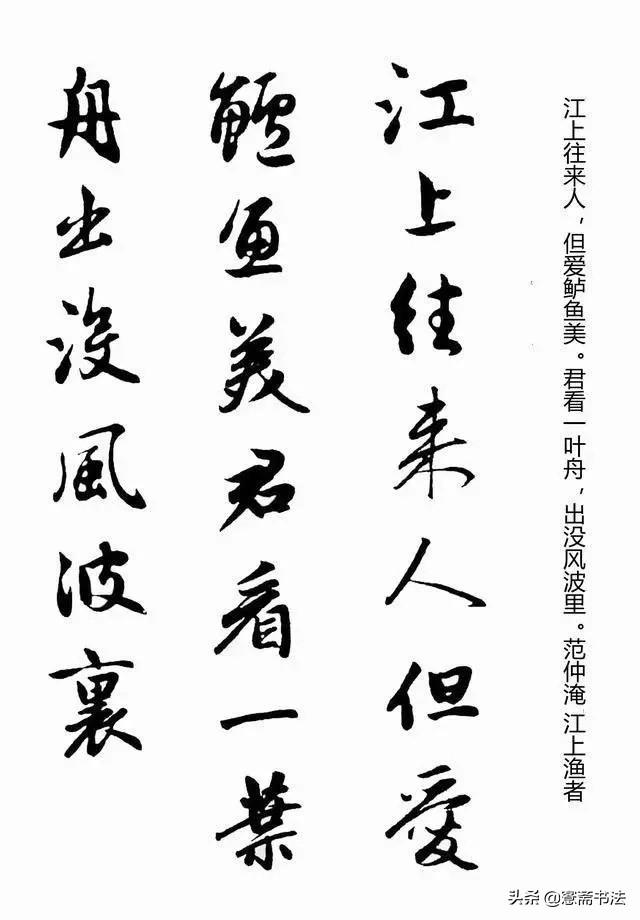 江上往来人，但爱鲈鱼美。君看一叶舟，出没风波里。范仲淹 江上渔者
江上往来人但愛
鱸魚美君看一葉
舟出没風波裏
头条@憲斋书法